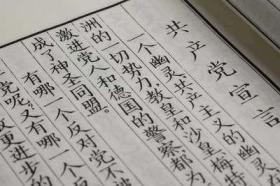 共产党宣言
一个幽灵共产主义的幽灵
洲的一切势力教皇和沙皇梅特
激进党人和德国的警察都为
成了神圣同盟。
有哪一个反对党不
党呢?又有哪一个
更进步的